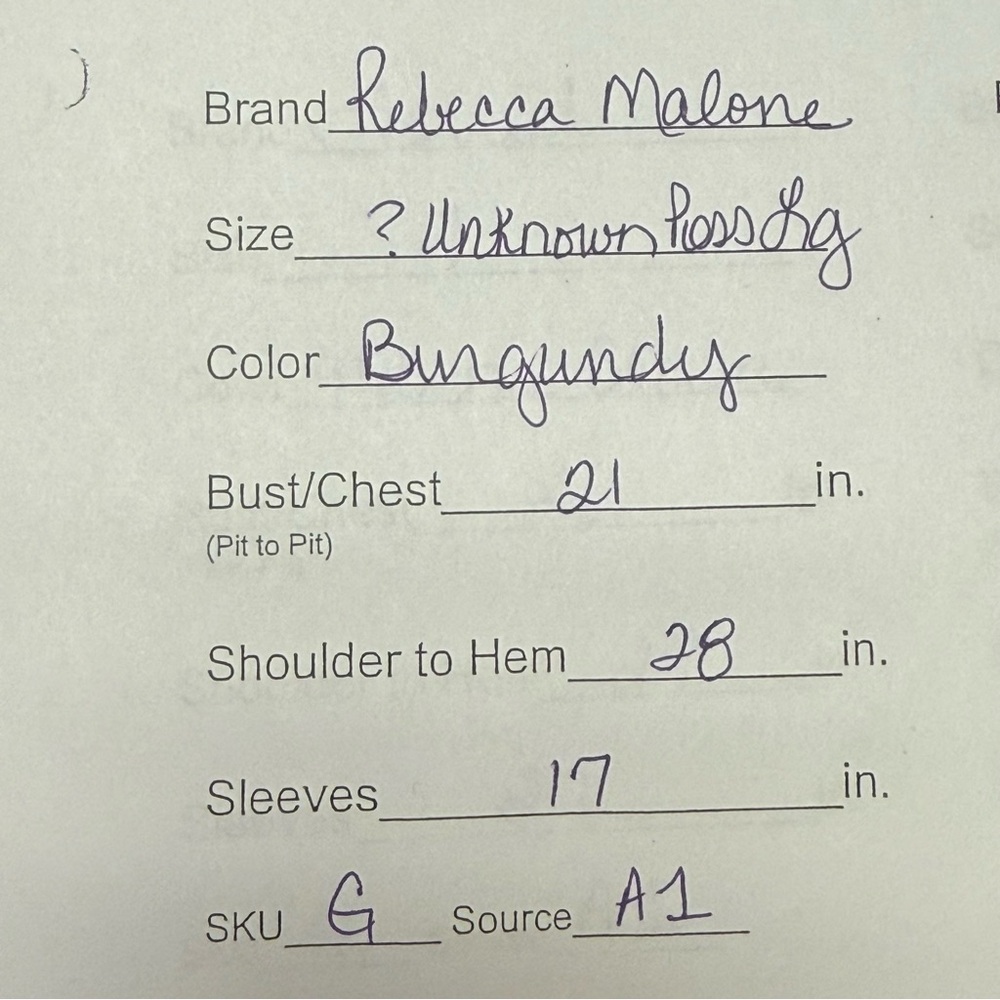 Brand Rebecca Malone
Size ? Unknown Poss Lg
Color Burgundy
Bust/Chest 21 in.
(Pit to Pit)
Shoulder to Hem 28 in.
Sleeves 17 in.
SKU G Source A1